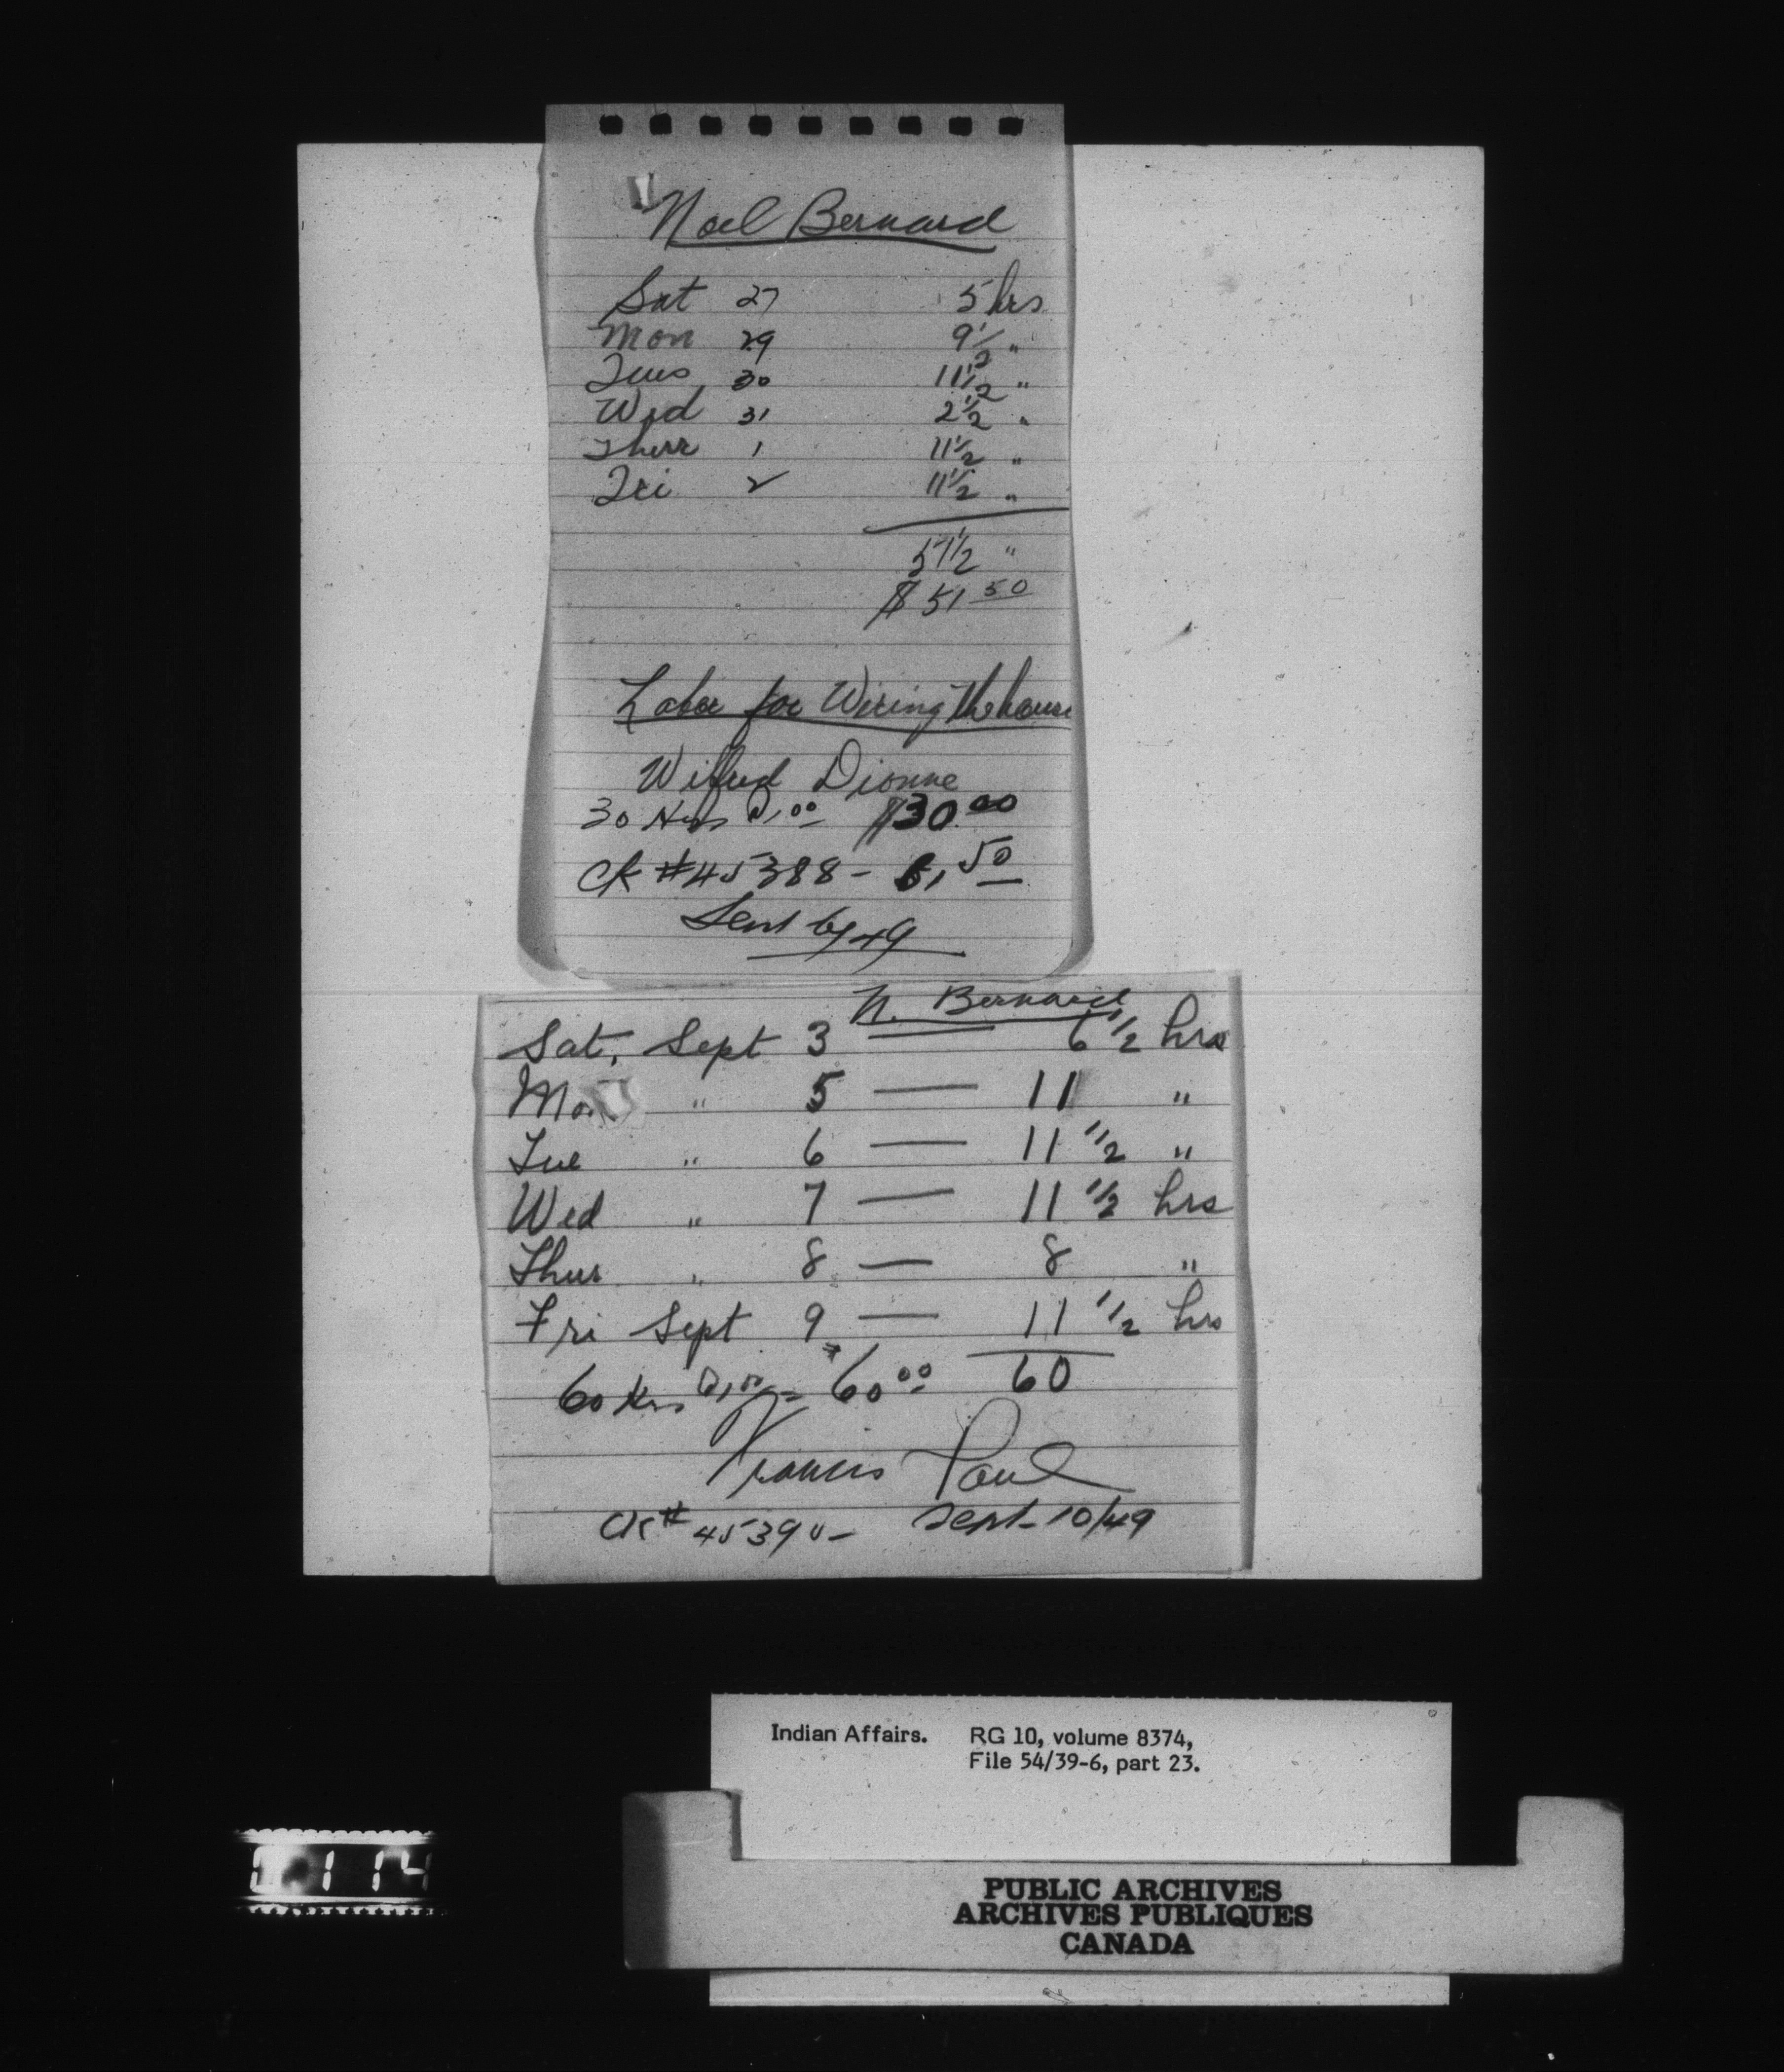 Noel Bernard
Sat 27 5 hrs
Mon 29 9 1/2 "
Tues 30 11 1/2 "
Wed 31 2 1/2 "
Thurr 1 11 1/2 "
Fri 2 11 1/2 "
51 1/2 "
$51 50
Labor for Wiring the house
Wilfred Dionne
30 Hrs @ 1.00 $30.00
Ck #45388 - 81.50
Sent 6/49
N. Bernard
Sat, Sept 3 — 6 1/2 hrs
Mon " 5 — 11 "
Tue " 6 — 11 1/2 "
Wed " 7 — 11 1/2 hrs
Thur " 8 — 8 "
Fri Sept 9 — 11 1/2 hrs
60
60 Hrs @ 1.00 = 60 00
Francis Paul
Ck # 45390 - Sept - 10/49
Indian Affairs. RG 10, volume 8374,
File 54/39-6, part 23.
0 114
PUBLIC ARCHIVES
ARCHIVES PUBLIQUES
CANADA